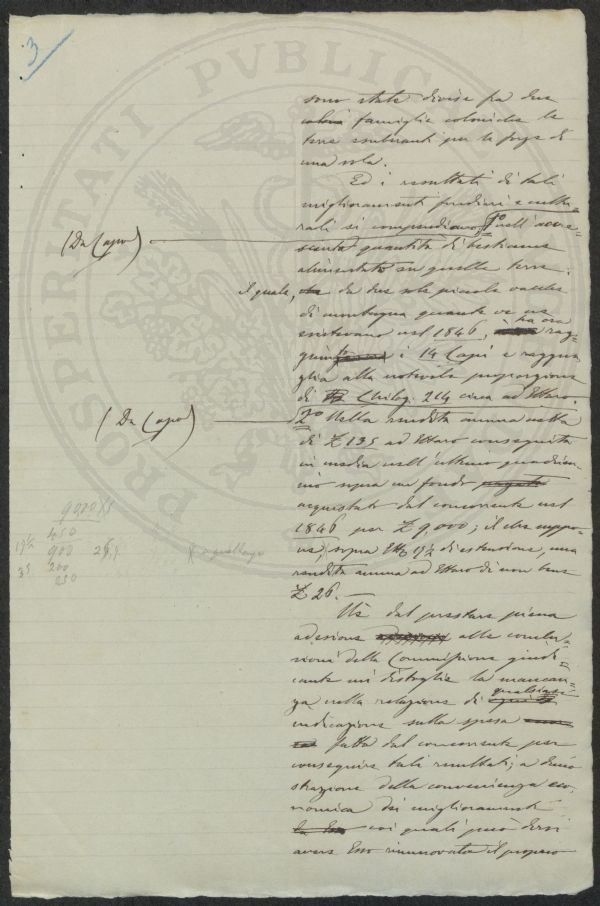 3
sono state divise fra due
famiglie coloniche le
terre esuberanti per le forze di
una sola.
Ed i resultati di tali
miglioramenti fondiari e cultu-
rali si compendiano, 1º nell'accre-
(Da Capo)
sciuta quantità di bestiame
alimentato su quelle terre.
il quale, da due sole piccole vacche
di montagna quante ve ne
esistevano nel 1846, ha ora
i 14 Capi e raggua-
glia alla notevole proporzione
di Chilog. 214 circa ad Ettaro.
(Da Capo)
2º Nella rendita annua netta
di £ 135 ad Ettaro conseguita
in media nell'ultimo quadrien-
nio sopra un fondo
acquistato dal concorrente nel
1846 per £ 9,000; il che suppo-
neva, sopra Ett. 17½ di estensione, una
rendita annua ad Ettaro di non
£ 26. —
Nè dal prestare piena
adesione alle conclu-
sioni della Commissione giudi-
cante mi distoglie la mancan-
za nella relazione di qualsiasi
indicazione sulla spesa
fatta dal concorrente per
conseguire tali resultati; a dimo-
strazione della convenienza eco-
nomica dei miglioramenti
coi quali può dirsi
avere Esso rinnovato il proprio
9000
450
17½ 900 26
35 200
250
PROSPERITATI PVBLICAE